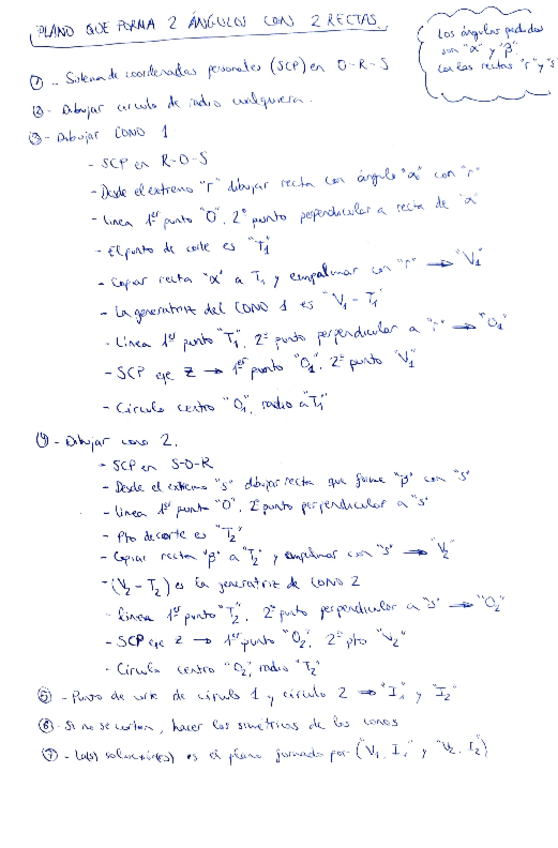 PLANO QUE FORMA 2 ÁNGULOS CON 2 RECTAS
Los ángulos pedidos
son "α" y "β"
con las rectas "r" y "s"
① - Sistema de coordenadas personales (SCP) en O-R-S
② - Dibujar círculo de radio cualquiera.
③ - Dibujar CONO 1
- SCP en R-O-S
- Desde el extremo "r" dibujar recta con ángulo "α" con "r"
- Línea 1er punto "O", 2º punto perpendicular a recta de "α"
- El punto de corte es "T1"
- Copiar recta "α" a T1 y empalmar con "r" → "V1"
- La generatriz del CONO 1 es "V1 - T1"
- Línea 1er punto "T1", 2º punto perpendicular a "r" → "O1"
- SCP eje Z → 1er punto "O1", 2º punto "V1"
- Círculo centro "O1", radio a "T1"
④ - Dibujar cono 2.
- SCP en S-O-R
- Desde el extremo "s" dibujar recta que forme "β" con "s"
- Línea 1er punto "O", 2º punto perpendicular a "s"
- Pto de corte es "T2"
- Copiar recta "β" a "T2" y empalmar con "s" → "V2"
- (V2 - T2) es la generatriz de CONO 2
- Línea 1er punto "T2", 2º punto perpendicular a "s" → "O2"
- SCP eje Z → 1er punto "O2", 2º pto "V2"
- Círculo centro "O2", radio "T2"
⑤ - Punto de corte de círculo 1 y círculo 2 → "I1" y "I2"
⑥ - Si no se cortan, hacer los simétricos de los conos
⑦ - La(s) solución(es) es el plano formado por ("V1, I1" y "V2, I2")